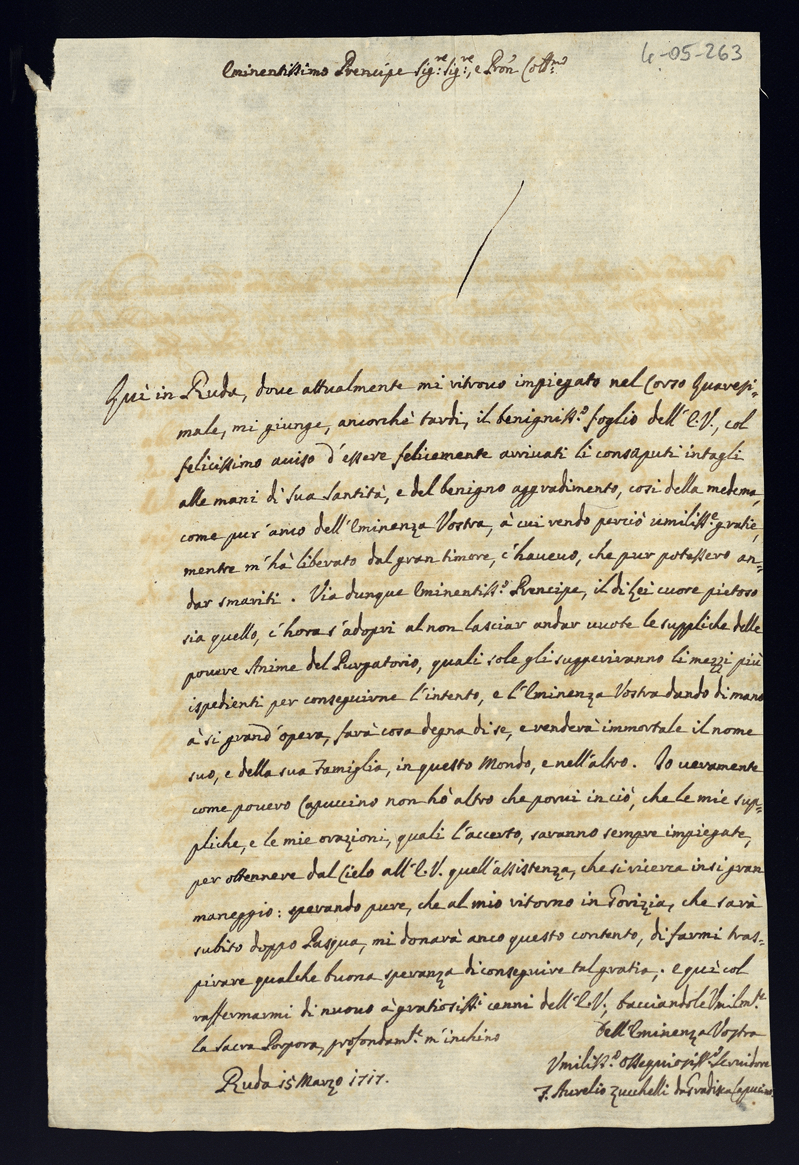 4-05-263
Eminentissimo Prencipe Sig.re Sig.re, e Pron Coll.mo
Quì in Ruda, doue attualmente mi ritrouo impiegato nel Corso Quaresi=
male, mi giunge, ancorchè tardi, il benigniss.o foglio dell'E.V., col
felicissimo auiso d'essere felicemente arriuati li consaputi intagli
alle mani di Sua Santità, e del benigno aggradimento, così della medema,
come pur'anco dell'Eminenza Vostra, à cui rendo perciò umiliss.e gratie,
mentre m'hà liberato dal gran timore, c'haueuo, che pur potessero an=
dar smariti. Via dunque Eminentiss.o Prencipe, il di Lei cuore pietoso
sia quello, c'hora s'adopri al non lasciar andar uuote le suppliche delle
pouere Anime del Purgatorio, quali sole gli suggeriranno li mezzi più
ispedienti per conseguirne l'intento, e l'Eminenza Vostra dando di mano
à si grand'opera, farà cosa degna di se, e renderà immortale il nome
suo, e della sua Famiglia, in questo Mondo, e nell'altro. Io ueramente
come pouero Capuccino non hò altro che porui in ciò, che le mie sup=
pliche, e le mie orazioni, quali l'accerto, saranno sempre impiegate,
per ottennere dal Cielo all'E.V. quell'assistenza, che si ricerca in si gran
maneggio: sperando pure, che al mio ritorno in Gorizia, che sarà
subito doppo Pasqua, mi donarà anco questo contento, di farmi tras=
pirare qualche buona speranza di conseguire tal gratia; e quì col
raffermarmi di nuouo à gratiosiss.i cenni dell'E.V., bacciandole Vmilmt.e
la Sacra Porpora, profondamt.e m'inchino
Dell'Eminenza Vostra
Vmiliss.o Ossequiosiss.o Seruidore
F. Aurelio Zucchelli da Gradisca Capucino
Ruda 15 Marzo 1717.